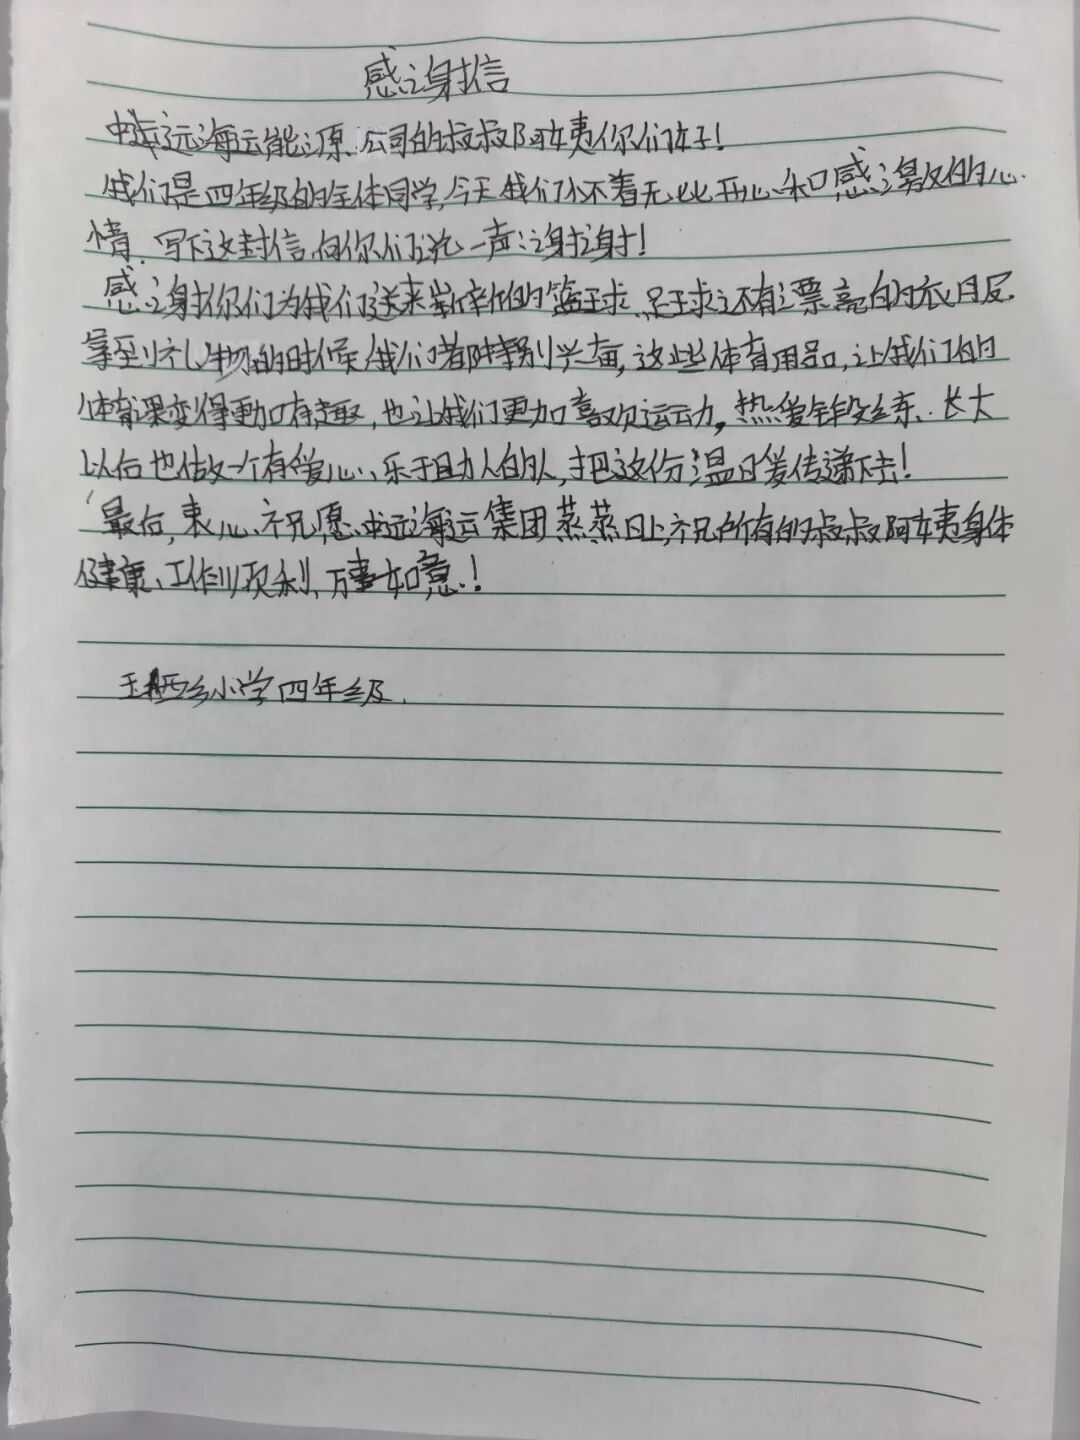 感谢信
中远海运能源公司的叔叔阿姨你们好!
我们是四年级的全体同学,今天我们怀着无比开心和感激的心
情.写下这封信,向你们说一声谢谢!
感谢你们为我们送来崭新的篮球、足球还有漂亮的衣服.
拿到礼物的时候我们都特别兴奋,这些体育用品,让我们的
体育课变得更加有趣,也让我们更加喜欢运动,热爱锻练、长大
以后也做一个有爱心、乐于助人的人,把这份温暖传递下去!
最后,衷心祝愿中远海运集团蒸蒸日上,祝所有的叔叔阿姨身体
健康、工作顺利,万事如意!
乡小学四年级.